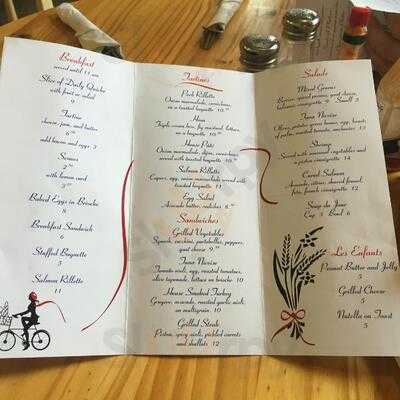 Breakfast
served until 11 am
Slice of Daily Quiche
with fruit or salad
9
Tartine
cheese, jam, and butter
6
add bacon and eggs 3
Scones
2
with lemon curd
3
Baked Eggs in Brioche
8
Breakfast Sandwich
6
Stuffed Baguette
5
Salmon Rillette
11
Tartines
Pork Rillette
Onion marmalade, cornichons,
on a toasted baguette 10
Ham
Triple cream brie, fig mustard, lettuce,
on a baguette 10
House Pâté
Onion marmalade, dijon, cornichons,
served with toasted baguette 10
Salmon Rillette
Capers, egg, onion marmalade served with
toasted baguette 11
Egg Salad
Avocado butter, radishes 8
Sandwiches
Grilled Vegetables
Squash, zucchini, portabellas, peppers,
goat cheese 9
Tuna Nicoise
Tomato aioli, egg, roasted tomatoes,
olive tapenade, lettuce on brioche 10
House Smoked Turkey
Gruyere, avocado, roasted garlic aioli,
on multigrain 10
Grilled Steak
Piston, spicy aioli, pickled carrots
and shallots 12
Salads
Mixed Greens
goat cheese,
vinaigrette 9 Small 5
Tuna Nicoise
Olives, potato, green beans, egg, hearts
of palm, roasted tomato, anchovies 13
Shrimp
Served with seasonal vegetables and
a pistou vinaigrette 14
Camel Salmon
Avocado, citrus, shaved fennel,
feta, fennel vinaigrette 12
Soup du Jour
Cup 3 Bowl 6
Les Enfants
Peanut Butter and Jelly
5
Grilled Cheese
5
Nutella on Toast
5